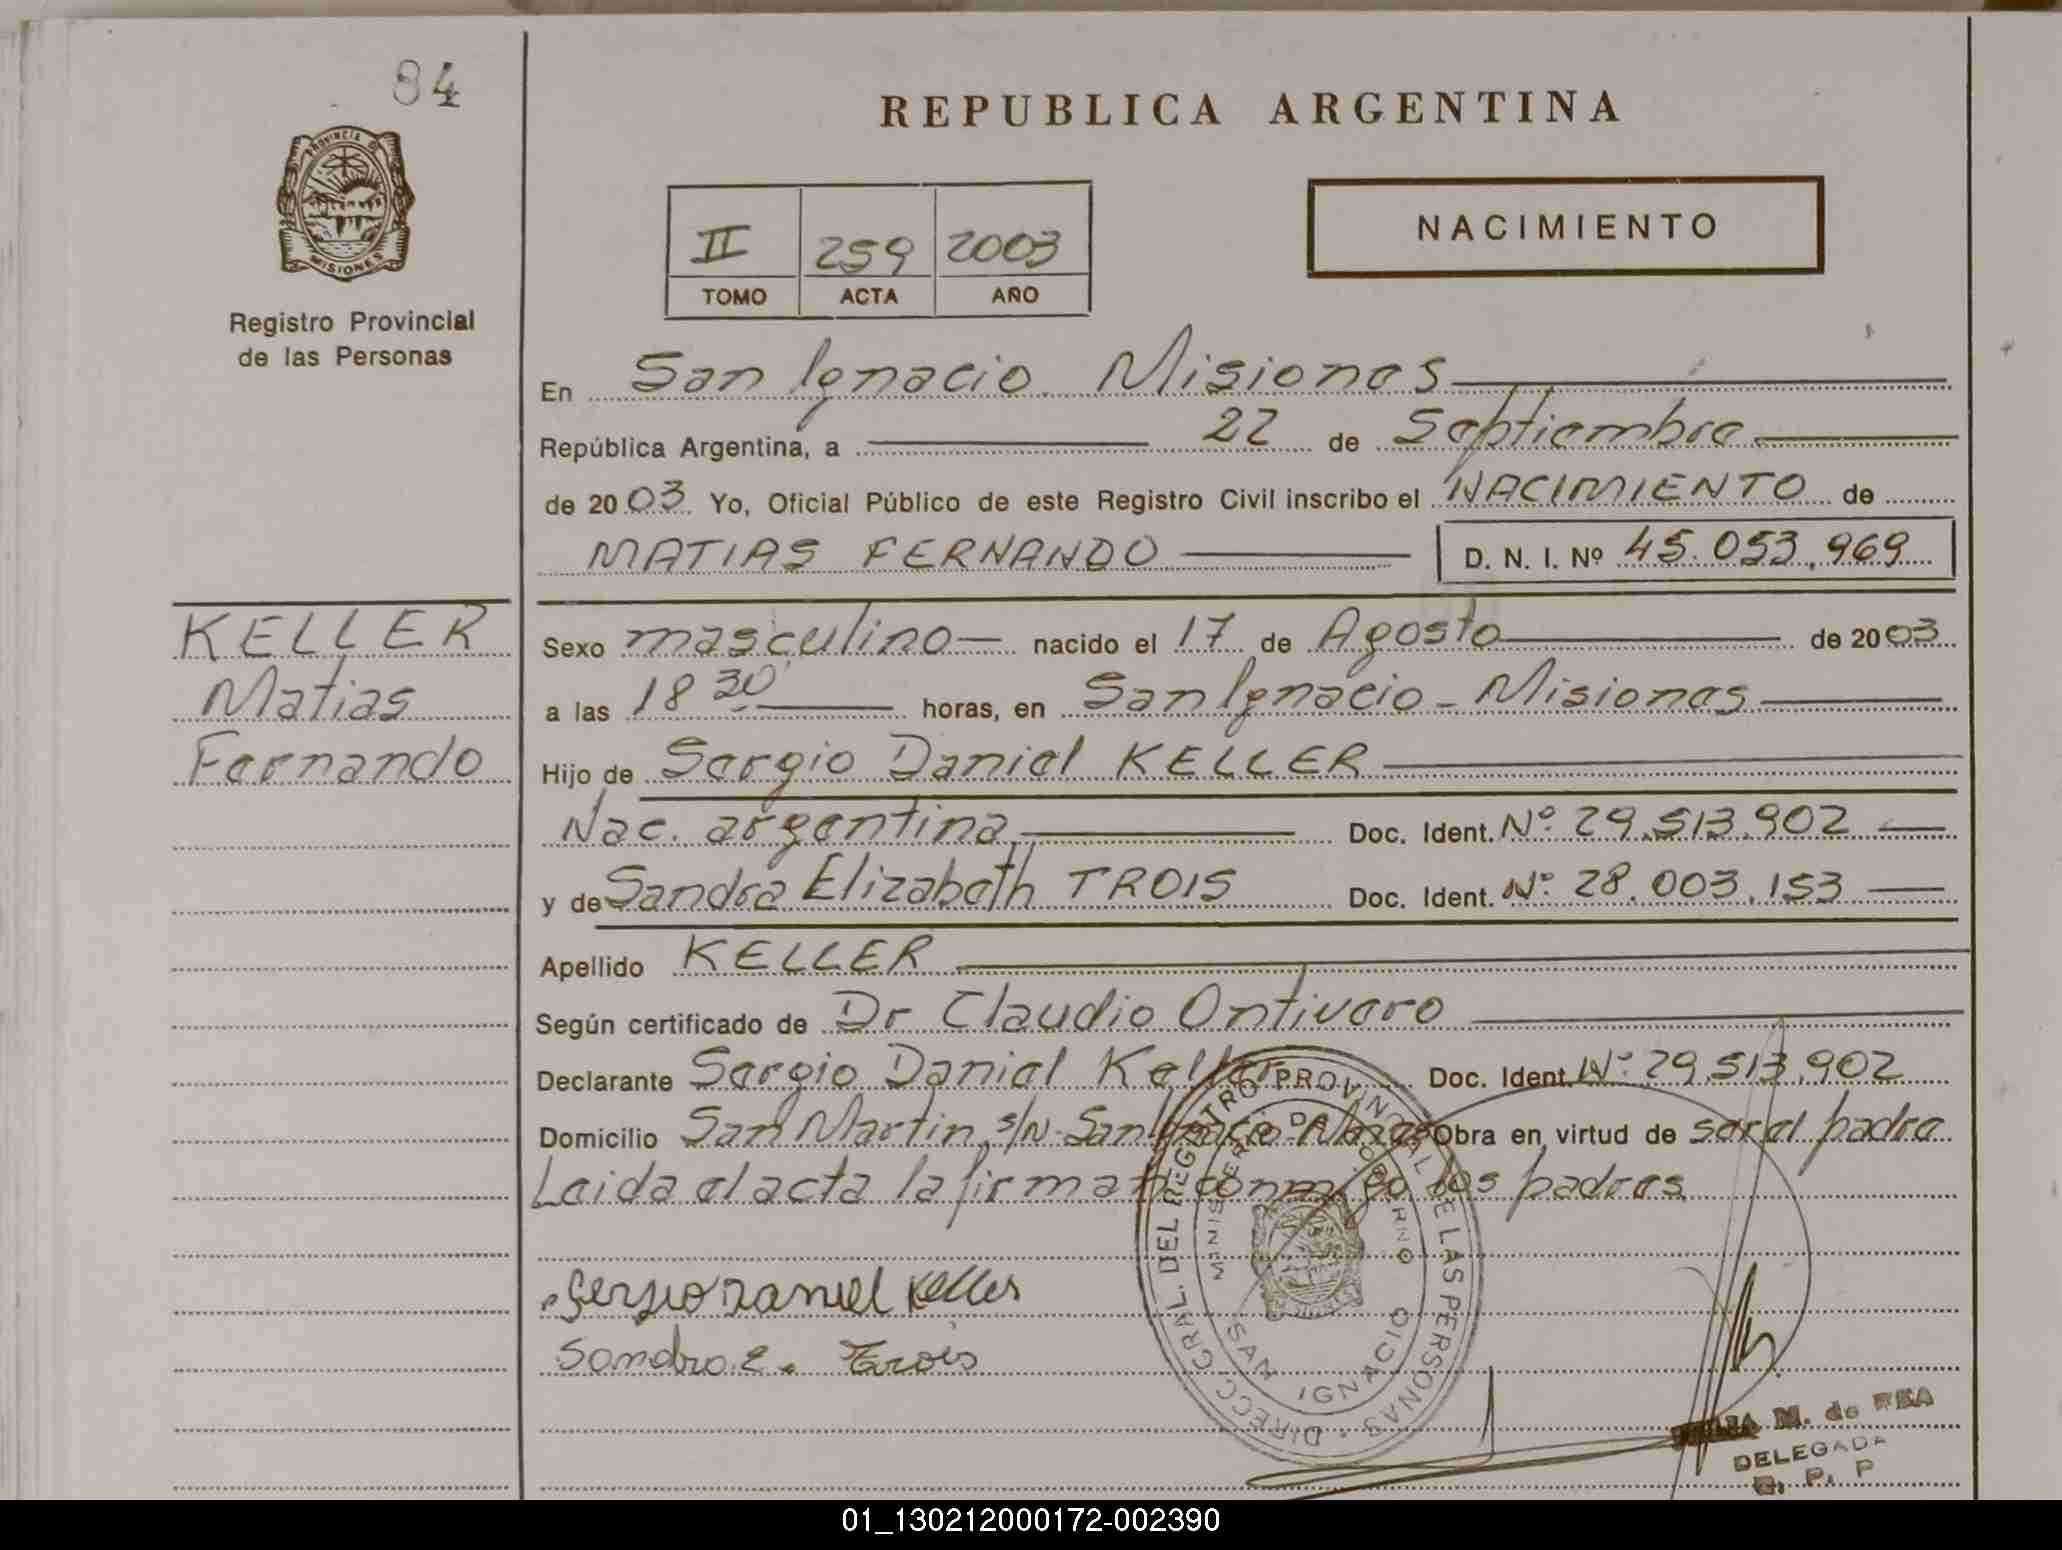 84
PROVINCIA D
MISIONES
Registro Provincial
de las Personas
REPUBLICA ARGENTINA
II 259 2003
TOMO ACTA AÑO
NACIMIENTO
En San Ignacio Misiones
República Argentina, a 22 de Septiembre
de 2003 Yo, Oficial Público de este Registro Civil inscribo el NACIMIENTO de
MATIAS FERNANDO D. N. I. Nº 45.053.969
KELLER
Matias
Fernando
Sexo masculino nacido el 17 de Agosto de 2003
a las 18 30 horas, en San Ignacio - Misiones
Hijo de Sergio Daniel KELLER
Nac. argentina Doc. Ident. Nº 29.513.902
y de Sandra Elizabeth TROIS Doc. Ident. Nº 28.003.153
Apellido KELLER
Según certificado de Dr Claudio Ontivero
Declarante Sergio Daniel Keller Doc. Ident. Nº 29.513.902
Domicilio San Martin s/N San Ignacio Mnes Obra en virtud de ser el padre
Leida el acta la firman conmigo los padres
Sergio Daniel Keller
Sandra E. Trois
DIRECC GRAL. DEL REGISTRO PROVINCIAL DE LAS PERSONAS
MINISTERIO DE GOBIERNO
SAN IGNACIO
M. de FEA
DELEGADA
R. P. P
01_130212000172-002390